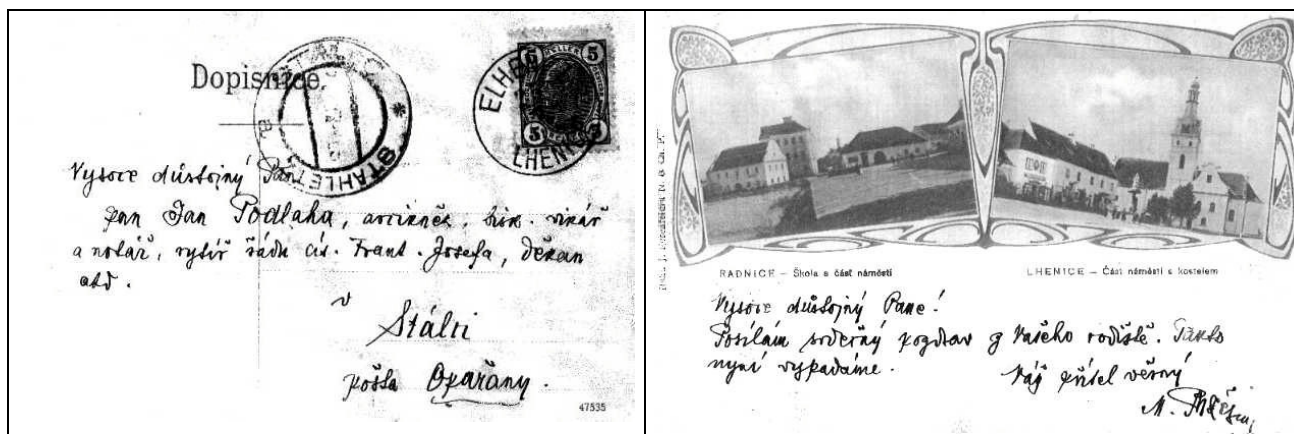 Dopisnice.
STAHLETZ
ELHE
LHENIC
HELLER
5 5
5 5
Vysoce důstojný Pan
pan Jan Podlaha, arcikněz, bisk. vikář
a notář, rytíř řádu cís. Frant. Josefa, děkan
atd.
v
Stálci
pošta Opařany.
47535
RADNICE – Škola a část náměstí
LHENICE – Část náměstí s kostelem
Vysoce důstojný Pane!
Posílám srdečný pozdrav z Vašeho rodiště. Takto
nyní vypadáme.
Váš přítel věrný